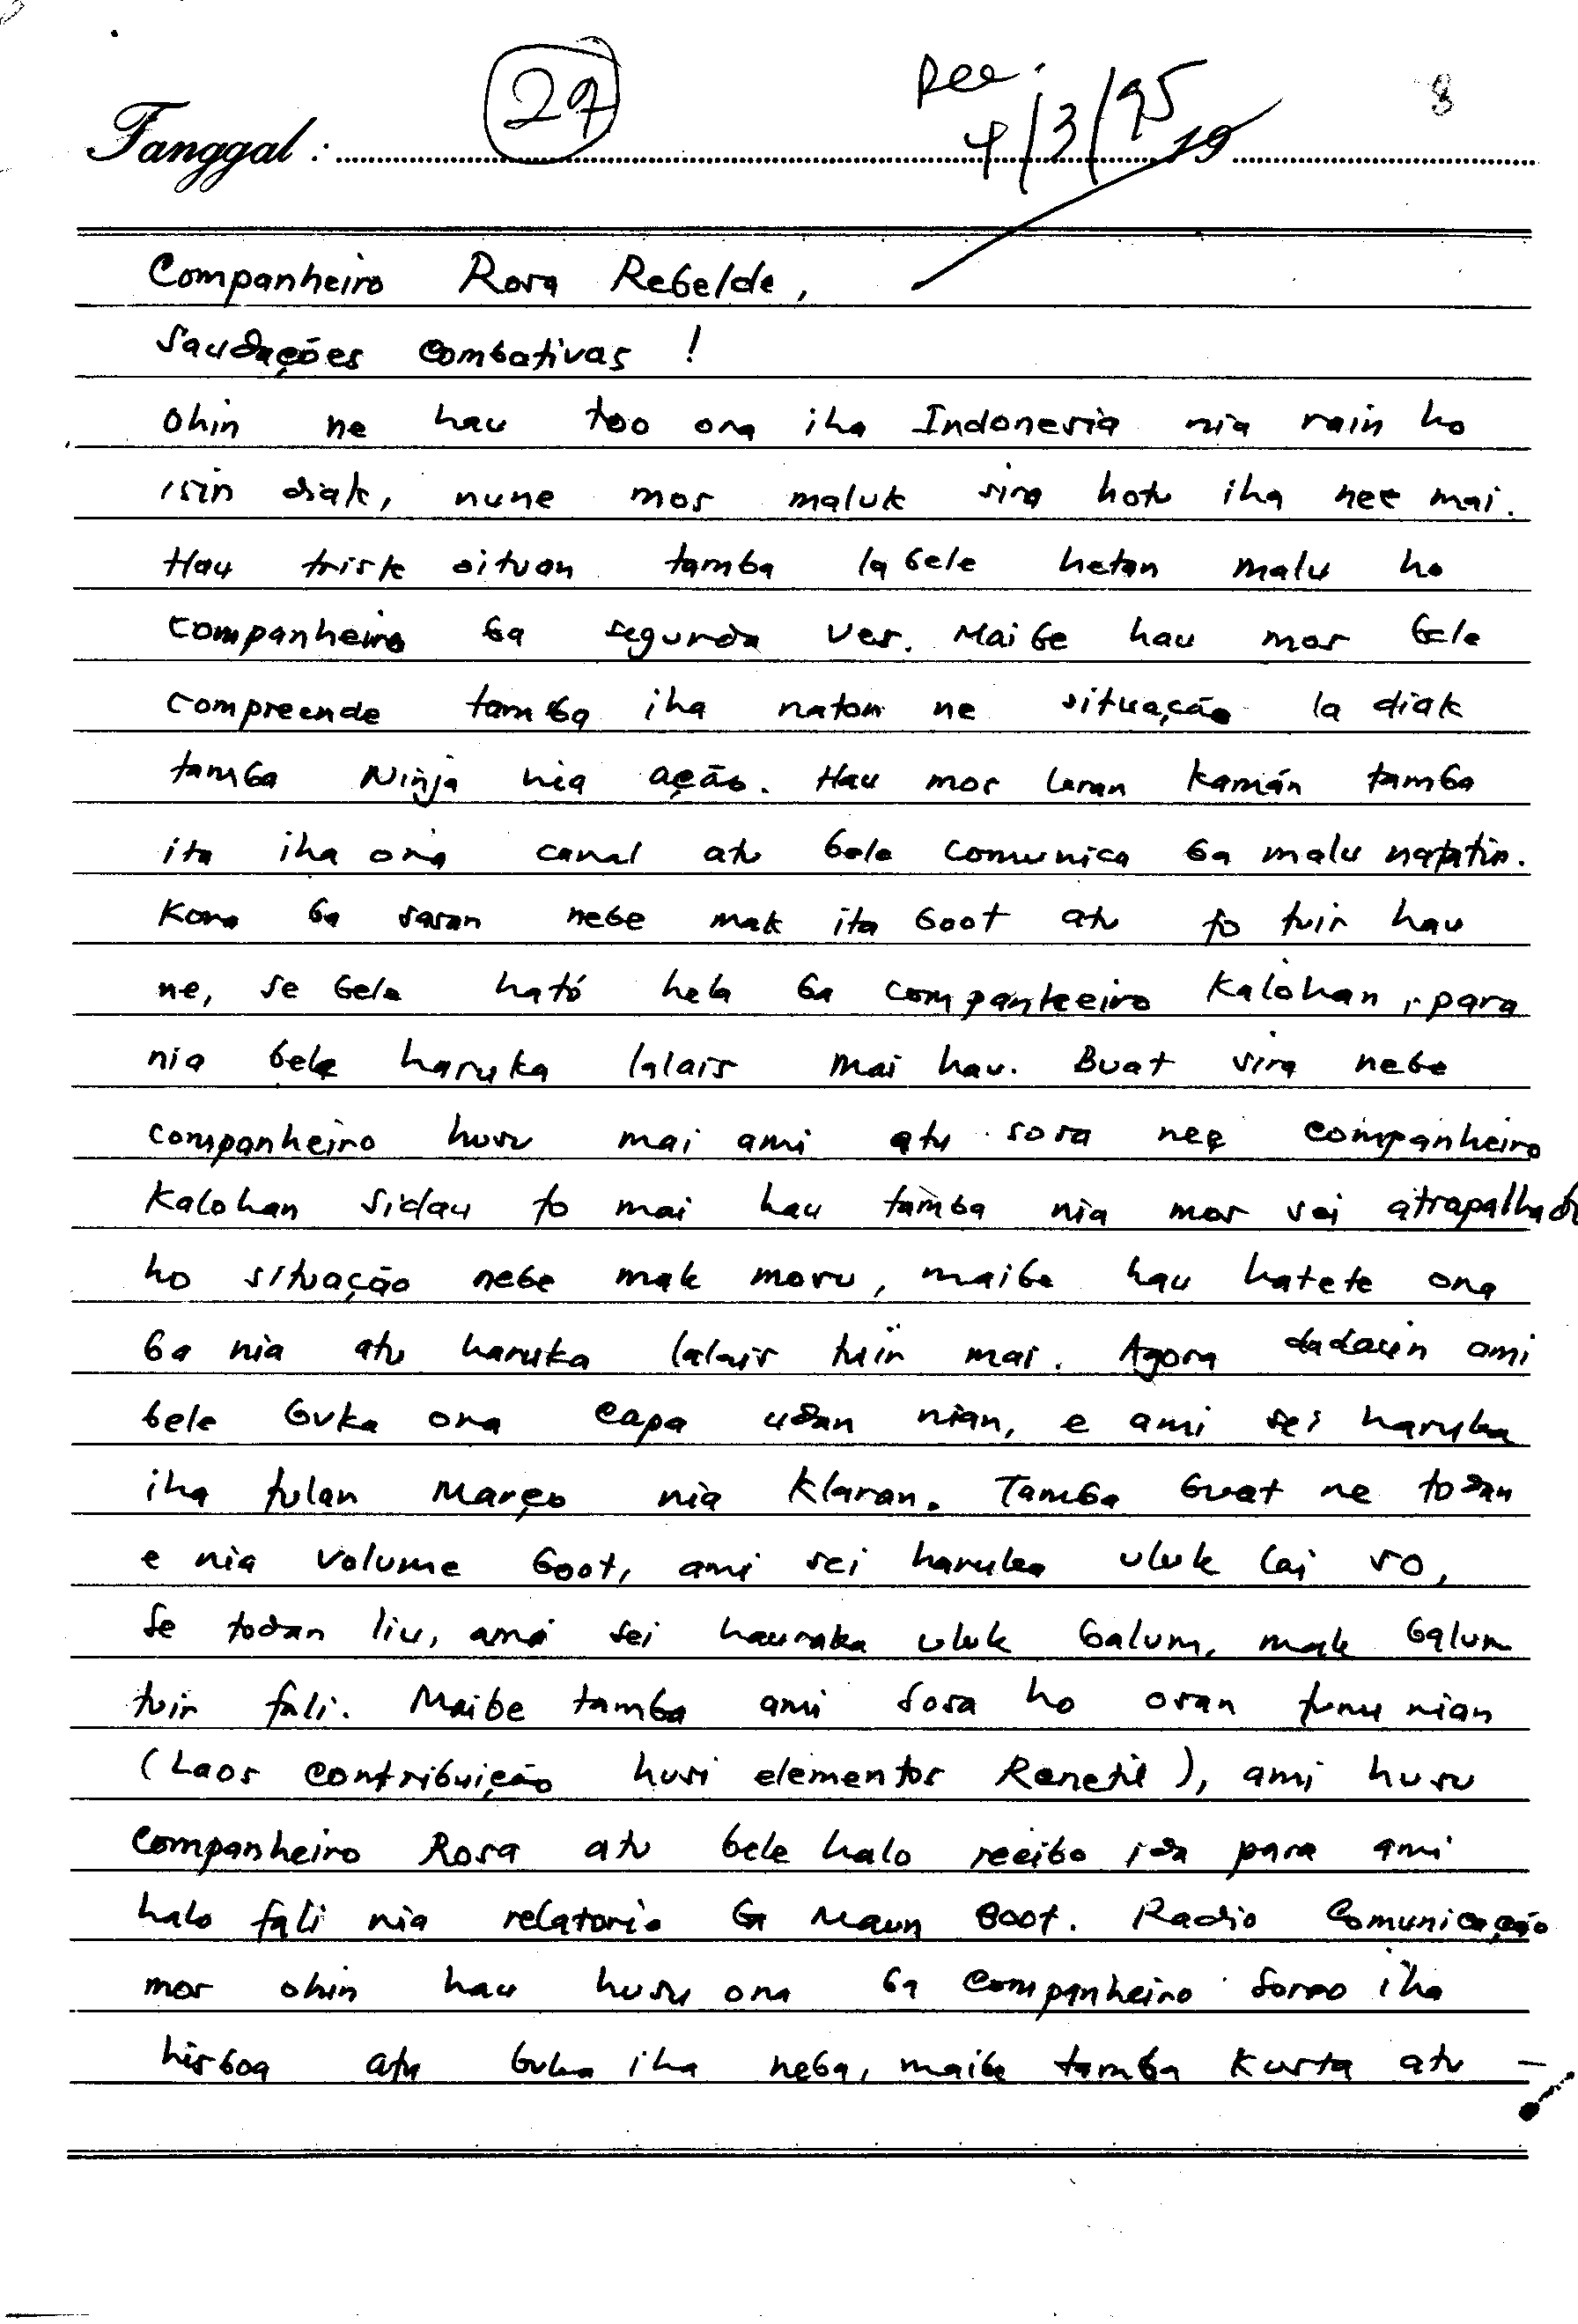 27
Rec.
4/3/95
8
Tanggal : 19
Companheiro Rosa Rebelde,
Saudações Combativas !
Ohin ne hau too ona iha Indonesia nia rain ho
isin diak, nune mos maluk sira hotu iha nee mai.
Hau triste oituan tamba la bele hetan malu ho
companheiro ba segunda ves. Maibe hau mos bele
compreende tamba iha naton ne situação la diak
tamba Ninja nia ação. Hau mos laran kamán tamba
ita iha ona canal atu bele comunica ba malu nafatin.
Kona ba sasan nebe mak ita boot atu fo tuir hau
ne, se bele ható hela ba companheiro Kalohan, para
nia bele haruka lalais mai hau. Buat sira nebe
companheiro husu mai ami atu sosa nee companheiro
Kalohan sidau fo mai hau tamba nia mos sei atrapalhado
ho situação nebe mak mosu, maibe hau hatete ona
ba nia atu haruka lalais tuir mai. Agora dadaun ami
bele buka ona capa udan nian, e ami sei haruka
iha fulan Março nia klaran. Tamba buat ne todan
e nia volume boot, ami sei haruka uluk lai 50,
Se todan liu, ami sei hauraka uluk balum, mak balun
tuir fali. Maibe tamba ami sosa ho osan funu nian
(Laos contribuição husi elementos Renetil), ami husu
Companheiro Rosa atu bele halo recibo ida para ami
halo fali nia relatorio ba Maun Boot. Radio Comunicação
mos ohin hau husu ona ba Companheiro iha
lisboa atu buka iha neba, maibe tamba kusta atu –